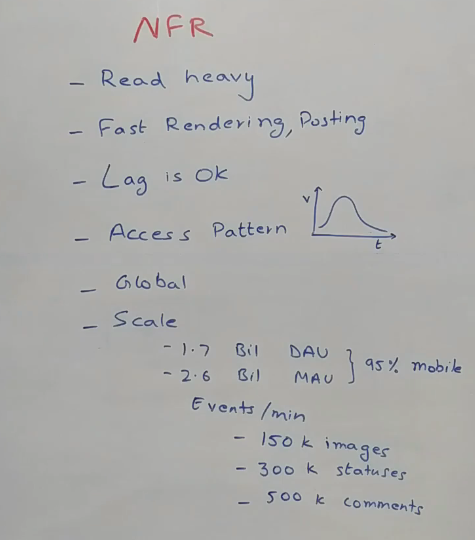 NFR
- Read heavy
- Fast Rendering, Posting
- Lag is Ok
- Access Pattern
V
t
- Global
- Scale
- 1.7 Bil DAU
- 2.6 Bil MAU
} 95% mobile
Events/min
- 150 k images
- 300 k statuses
- 500 k comments